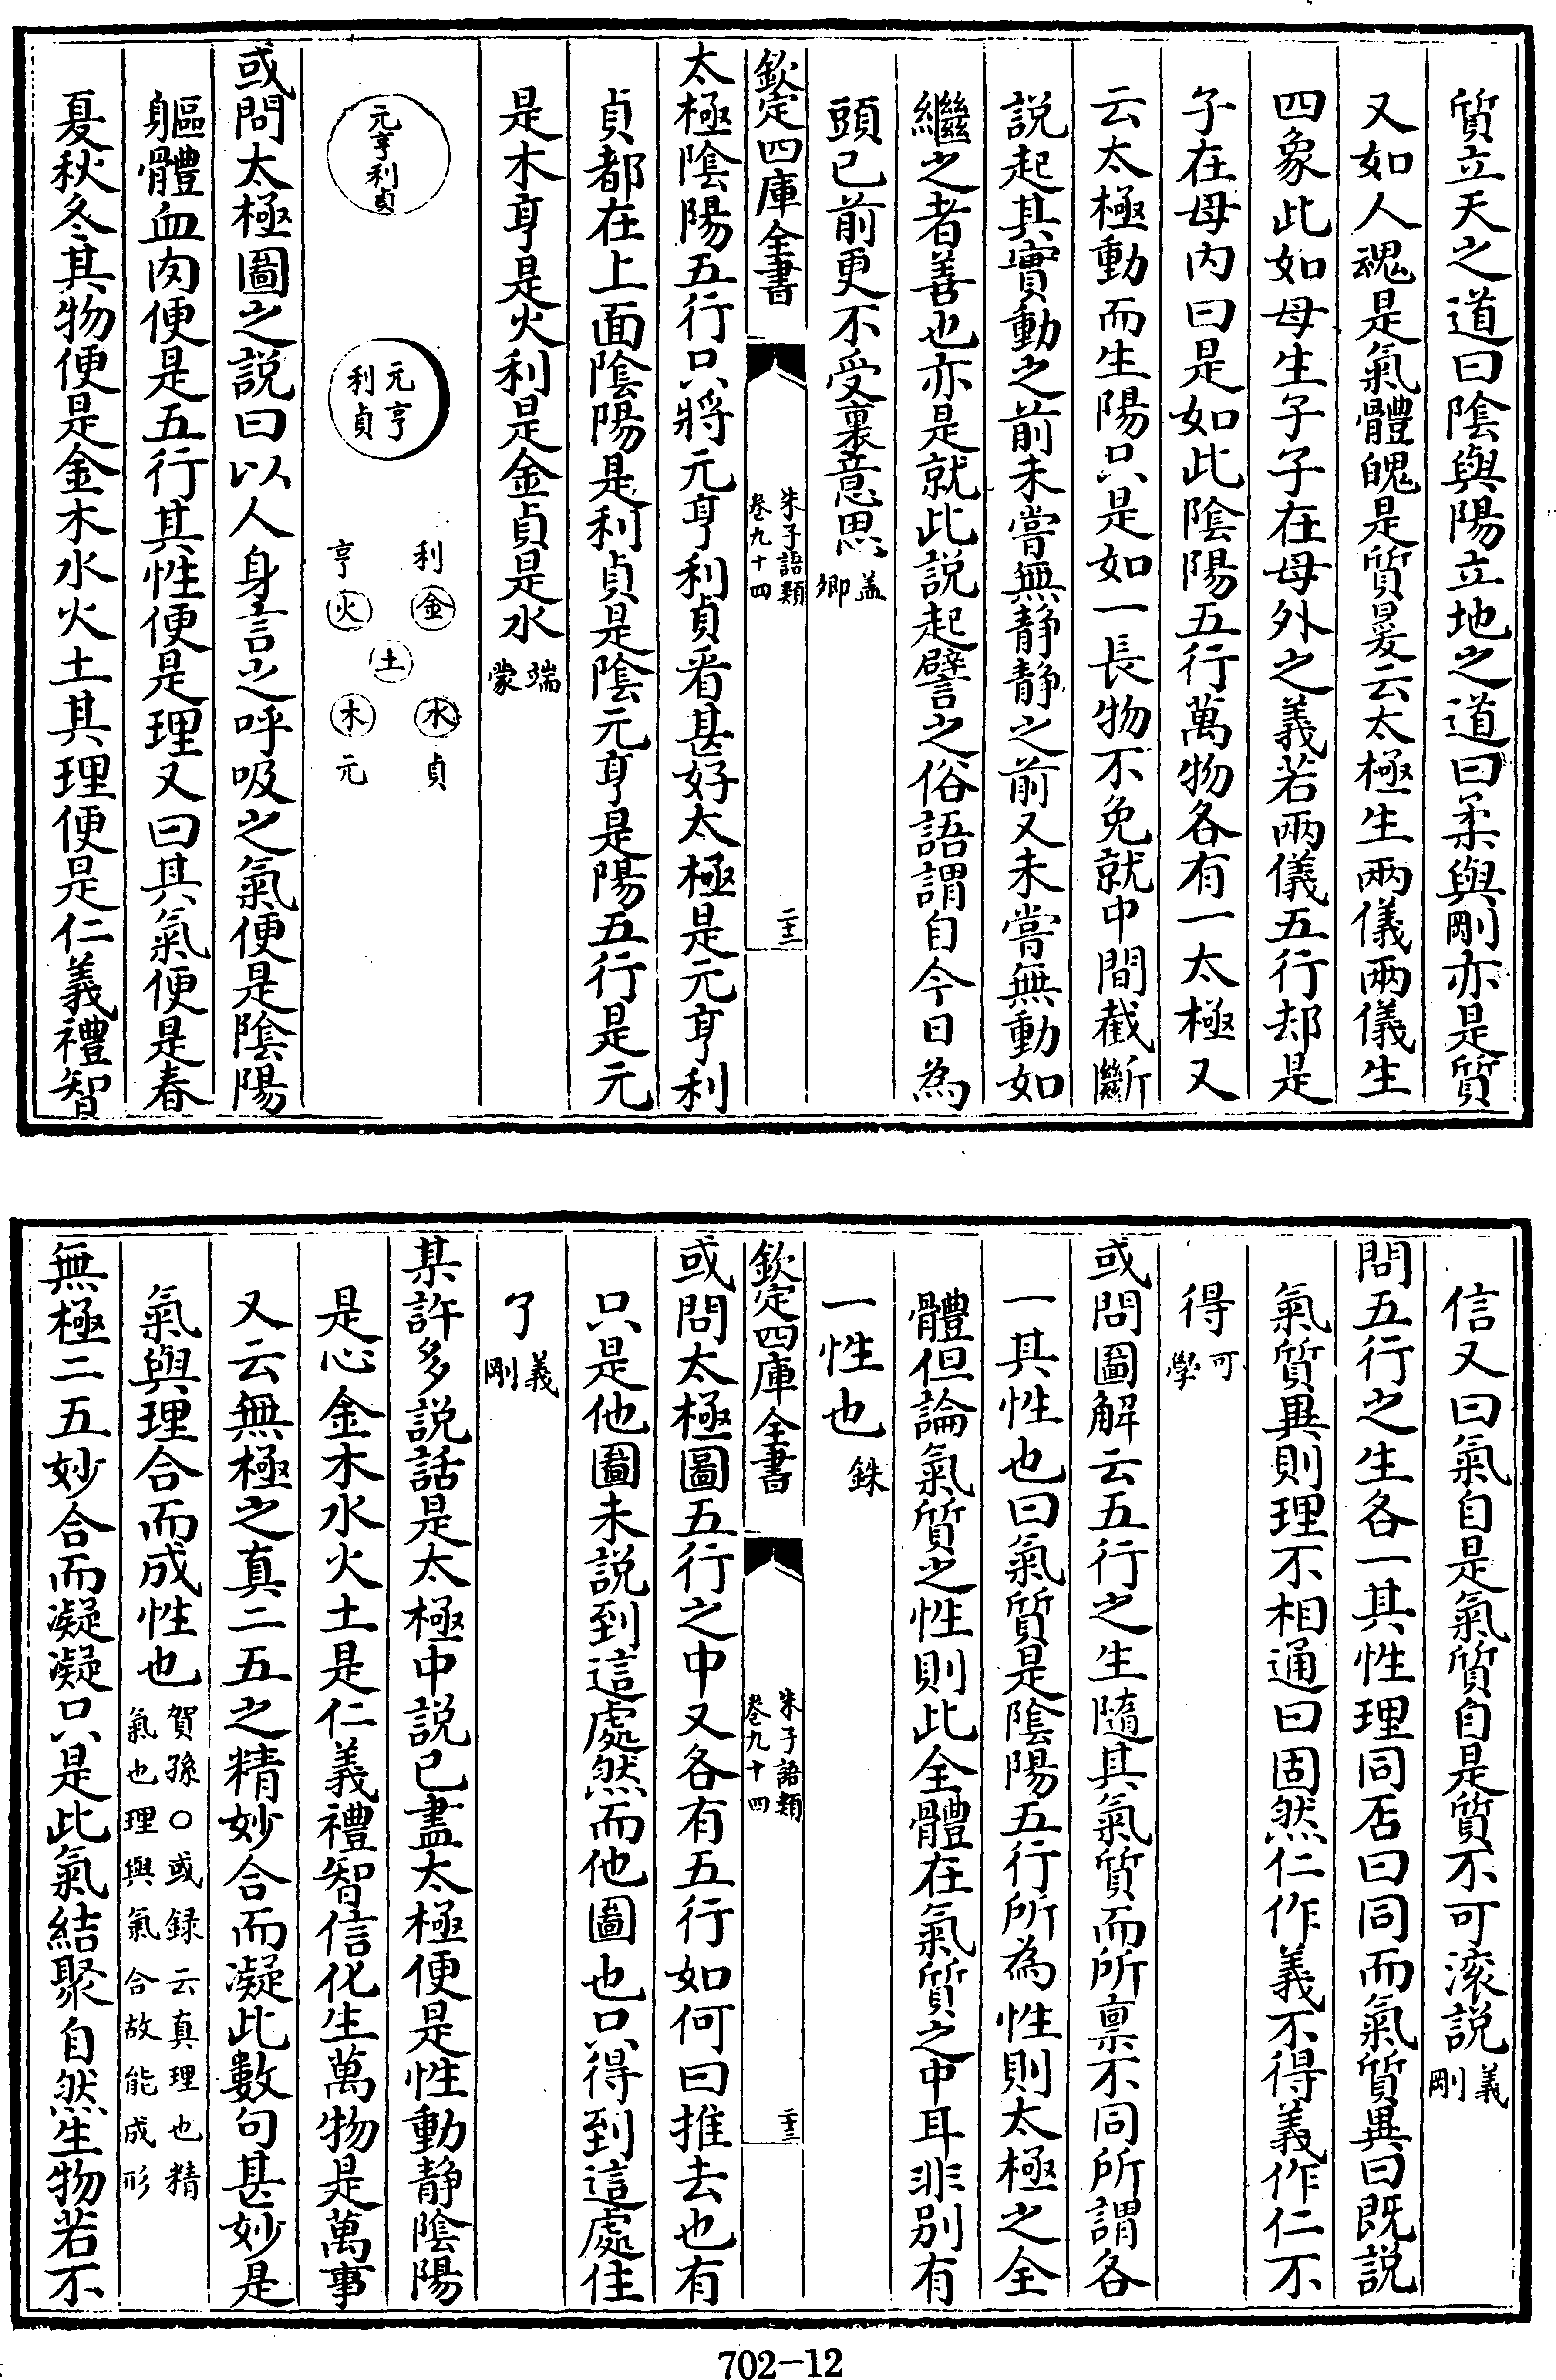 質立天之道曰陰與陽立地之道曰柔與剛亦是質
又如人魂是氣體魄是質㬊云太極生兩儀兩儀生
四象此如母生子子在母外之義若兩儀五行却是
子在母内曰是如此陰陽五行萬物各有一太極又
云太極動而生陽只是如一長物不免就中間截斷
説起其實動之前未嘗無静静之前又未嘗無動如
繼之者善也亦是就此説起譬之俗語謂自今日為
頭已前更不受裏意思 盖卿
欽定四庫全書
朱子語類
卷九十四
二十二
太極陰陽五行只將元亨利貞看甚好太極是元亨利
貞都在上面陰陽是利貞是陰元亨是陽五行是元
是木亨是火利是金貞是水 端蒙
元亨利貞
元亨
利貞
利 金
水 貞
土
亨 火
木 元
或問太極圖之説曰以人身言之呼吸之氣便是陰陽
軀體血肉便是五行其性便是理又曰其氣便是春
夏秋冬其物便是金木水火土其理便是仁義禮智
信又曰氣自是氣質自是質不可滚説 義剛
問五行之生各一其性理同否曰同而氣質異曰既説
氣質異則理不相通曰固然仁作義不得義作仁不
得 可學
或問圖解云五行之生隨其氣質而所禀不同所謂各
一其性也曰氣質是陰陽五行所為性則太極之全
體但論氣質之性則此全體在氣質之中耳非别有
一性也 銖
欽定四庫全書
朱子語類
卷九十四
二十三
或問太極圖五行之中又各有五行如何曰推去也有
只是他圖未説到這處然而他圖也只得到這處住
了 義剛
某許多説話是太極中説已盡太極便是性動静陰陽
是心金木水火土是仁義禮智信化生萬物是萬事
又云無極之真二五之精妙合而凝此數句甚妙是
氣與理合而成性也 賀孫○或録云真理也精
氣也理與氣合故能成形
無極二五妙合而凝凝只是此氣結聚自然生物若不
702-12